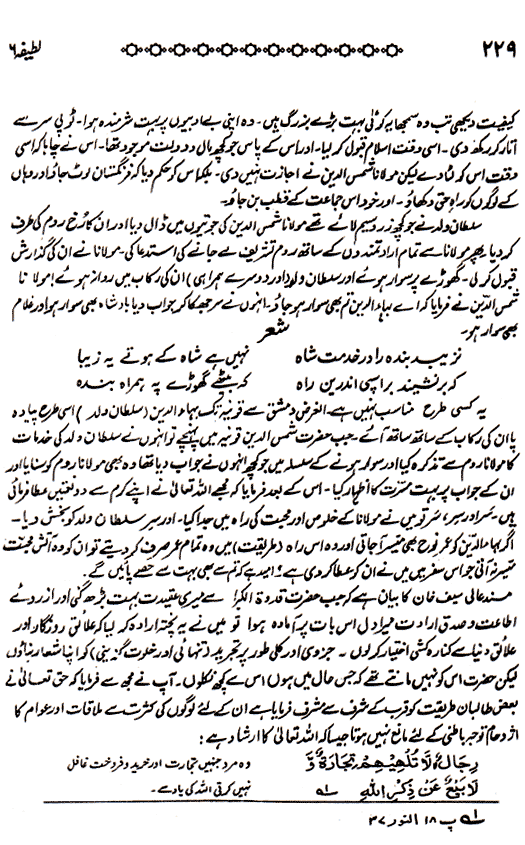 ۲۲۹ لطیفہ ۶
کیفیت دیکھی تب وہ سمجھا یہ کوئی بہت بڑے بزرگ ہیں۔ وہ اپنی بے ادبیوں پر بہت شرمندہ ہوا۔ ٹوپی سر سے
اتار کر رکھ دی۔ اسی وقت اسلام قبول کر لیا۔ اور اس کے پاس جو کچھ مال و دولت موجود تھا۔ اس نے چاہا کہ اسی
وقت اس کو لٹا دے لیکن مولانا شمس الدین نے اجازت نہیں دی۔ بلکہ اس کو حکم دیا کہ فرنگستان لوٹ جاؤ اور وہاں
کے لوگوں کو راہِ حق دکھاؤ۔ اور خود اس جماعت کے قطب بن جاؤ۔
سلطان ولد نے جو کچھ زر و سیم لائے تھے مولانا شمس الدین کی جوتیوں میں ڈال دیا اور ان کا رُخ روم کی طرف
کر دیا پھر مولانا سے تمام ارادتمندوں کے ساتھ روم تشریف لے جانے کی استدعا کی۔ مولانا نے ان کی گذارش
قبول کر لی۔ گھوڑے پر سوار ہوئے اور سلطان ولد (اور دوسرے ہمراہی) ان کی رکاب میں روانہ ہوئے! مولانا
شمس الدین نے فرمایا کہ اے بہاء الدین تم بھی سوار ہو جاؤ۔ انہوں نے سر جھکا کر جواب دیا بادشاہ بھی سوار ہو اور غلام
بھی سوار ہو۔
شعر
نزیبد بندہ را در خدمت شاہ نہیں ہے شاہ کے ہوتے یہ زیبا
کہ بر نشیند بر اسپی اندرین راہ کہ بیٹھے گھوڑے پہ ہمراہ بندہ
یہ کسی طرح مناسب نہیں ہے۔ الغرض دمشق سے قونیہ تک بہاء الدین (سلطان ولد) اسی طرح پیادہ
پا ان کی رکاب کے ساتھ ساتھ آئے۔ جب حضرت شمس الدین قونیہ میں پہنچے تو انہوں نے سلطان ولد کی خدمات
کا مولانا روم سے تذکرہ کیا اور سوار ہونے کے سلسلہ میں جو کچھ انہوں نے جواب دیا تھا وہ بھی مولانا روم کو سنایا اور
ان کے جواب پر بہت مسرت کا اظہار کیا۔ اس کے بعد فرمایا کہ مجھے اللہ تعالیٰ نے اپنے کرم سے دو نعمتیں عطا فرمائی
ہیں، سَر اور سِر، سَر تو میں نے مولانا کے خلوص اور محبت کی راہ میں جدا کیا۔ اور سِر سلطان ولد کو بخش دیا۔
اگر بہاء الدین کو عمر نوح بھی میسر آ جاتی اور وہ اس راہ (طریقت) میں وہ تمام عمر صرف کر دیتے تو ان کو وہ آتش محبت
میسر نہ آتی جو اس سفر میں میں نے ان کو عطا کر دی ہے! امید ہے کہ تم سے بھی بہت سے حصے پائیں گے۔
مسند عالی سیف خان کا بیان ہے کہ جب حضرت قدوۃ الکبرا سے میری عقیدت بہت بڑھ گئی اور از روئے
اطاعت و صدق ارادت میرا دل اس بات پر آمادہ ہوا تو میں نے یہ پختہ ارادہ کر لیا کہ علائق روزگار اور
علائق دنیا سے کنارہ کشی اختیار کر لوں۔ جزوی اور کلی طور پر تجرید (تنہائی اور خلوت گزینی) کو اپنا شعار بناؤں
لیکن حضرت اس کو نہیں مانتے تھے کہ جس حال میں ہوں اس سے کچھ نکلوں۔ آپ نے مجھ سے فرمایا کہ حق تعالیٰ نے
بعض طالبان طریقت کو قرب کے شرف سے مشرف فرمایا ہے ان کے لئے لوگوں کی کثرت سے ملاقات اور عوام کا
اژدحام توجہ باطنی کے لئے مانع نہیں ہوتا جیسا کہ اللہ تعالیٰ کا ارشاد ہے:
رِجَالٌ لَّا تُلْهِيهِمْ تِجَارَةٌ وَّ وہ مرد جنہیں تجارت اور خرید و فروخت غافل
لَا بَيْعٌ عَنْ ذِكْرِ اللهِ ؎۱ نہیں کرتی اللہ کی یاد سے۔
؎۱ پ ۱۸ النور ۳۷